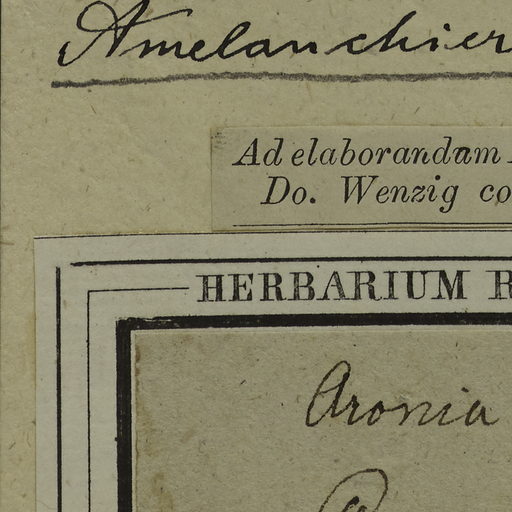 Amelanchier
Ad elaborandum
Do. Wenzig co
HERBARIUM R
Aronia